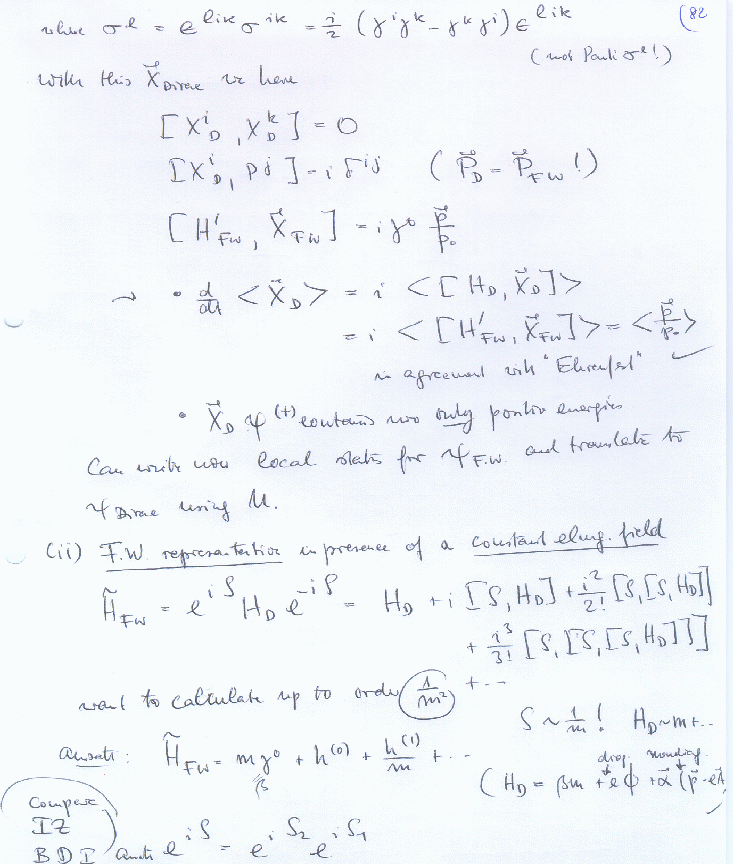 (82
where σ^l = ϵ^{lik} σ^{ik} = i/2 (γ^i γ^k - γ^k γ^i) ϵ^{lik}
(not Pauli σ^l!)
with this X⃗_Dirac we have
[X^i_D, X^k_D] = 0
[X^i_D, p^j] = i δ^{ij} (P⃗_D = P⃗_FW !)
[H'_FW, X⃗_FW] = i γ^0 p⃗/p_0
→ • d/dt <X⃗_D> = i <[H_D, X⃗_D]>
= i <[H'_FW, X⃗_FW]> = <p⃗/p_0>
in agreement with "Ehrenfest" ✓
• X⃗_D ψ^(+) contains now only positive energies
Can write now local states for ψ_F.W. and translate to
ψ_Dirac using U.
(ii) F.W. representation in presence of a constant elmg. field
H̃_FW = e^{iS} H_D e^{-iS} = H_D + i [S, H_D] + i²/2! [S, [S, H_D]]
+ i³/3! [S, [S, [S, H_D]]]
+ ...
want to calculate up to order 1/m²
S ~ 1/m ! H_D ~ m + ..
Ansatz: H̃_FW = m γ^0 + h^(0) + h^(1)/m + ...
β
diag. nondiag.
(H_D = βm + eϕ + α⃗ (p⃗ - eA⃗
Compare
IZ
BDI
Ansatz e^{iS} = e^{iS_2} e^{iS_1}